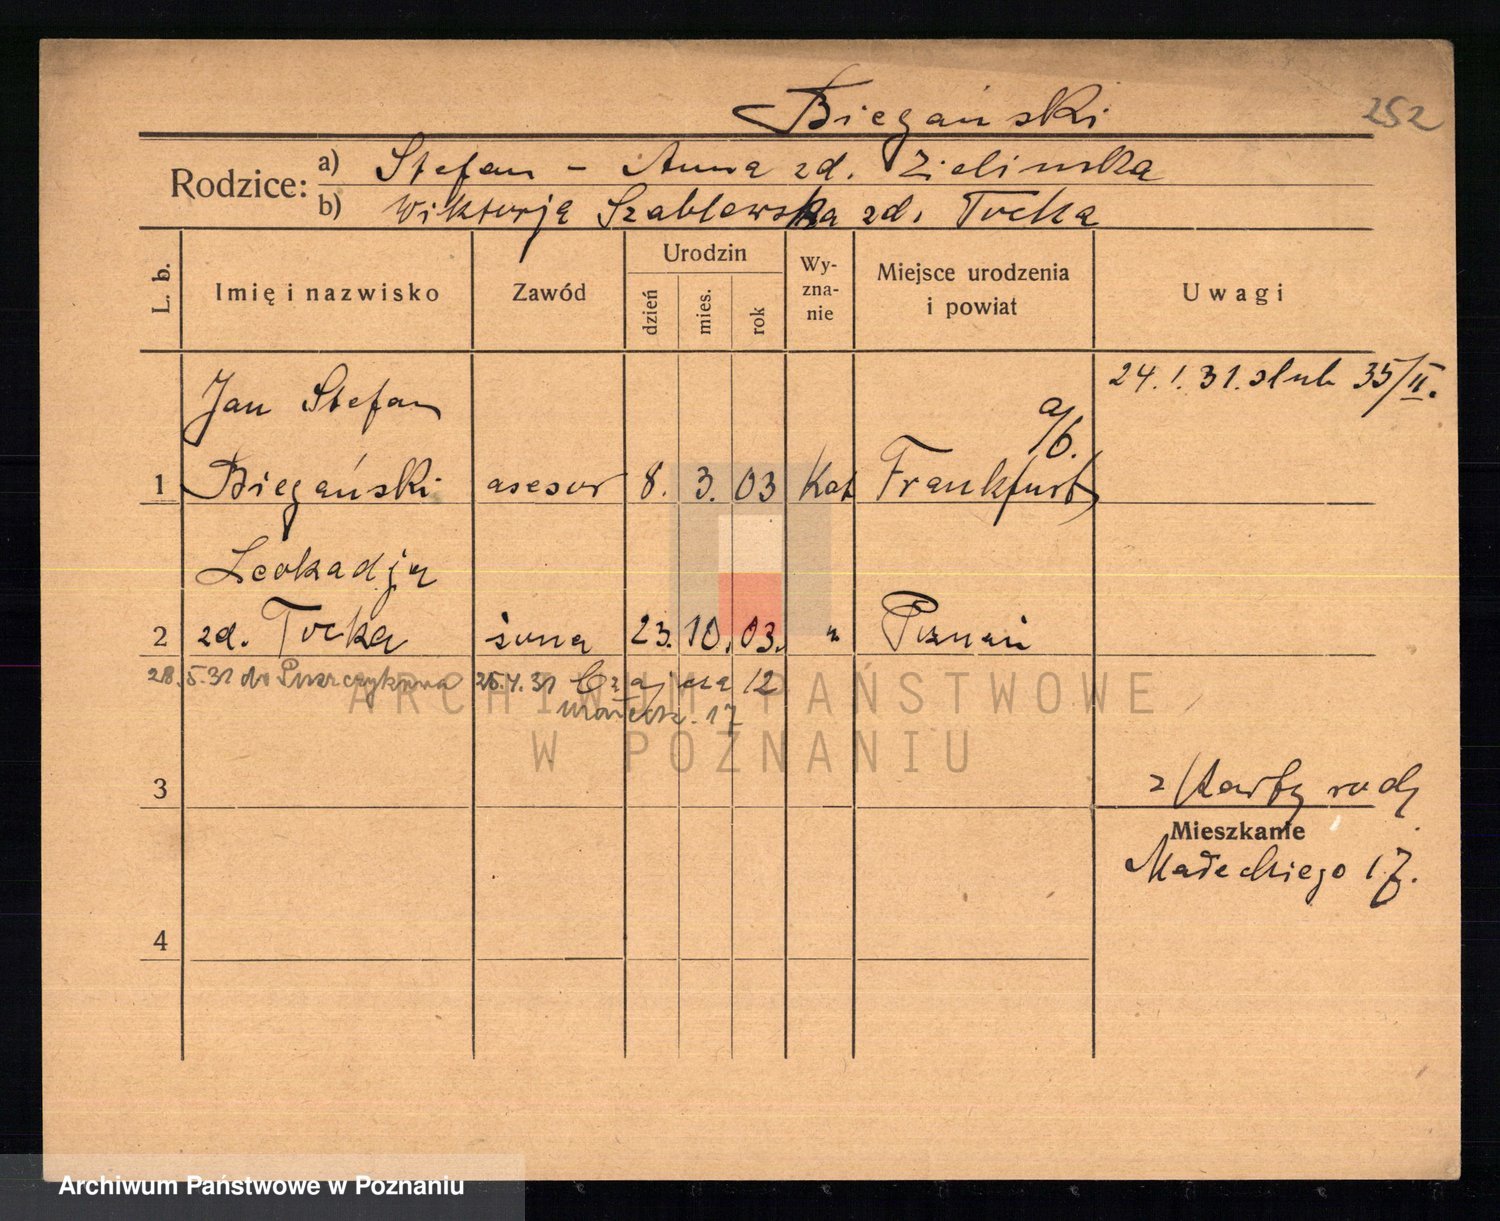 Biegański 252
Rodzice: a) Stefan – Anna zd. Zielinska
b) Wiktorja Szablewska zd. Tocka
L. b. Imię i nazwisko Zawód Urodzin dzień mies. rok Wy-zna-nie Miejsce urodzenia i powiat Uwagi
24.1.31. slub 35/II.
Jan Stefan
a/b.
1 Biegański asesor 8. 3. 03 Kat Frankfurt
Leokadja
2 zd. Tocka żona 23. 10. 03. " Poznań
28.5.31 do Puszczykowa 25.4.31 Czajcza 12
17
ARCHIWUM PAŃSTWOWE
W POZNANIU
3
z Karty rodz.
Mieszkanie
Małeckiego 17.
4
Archiwum Państwowe w Poznaniu